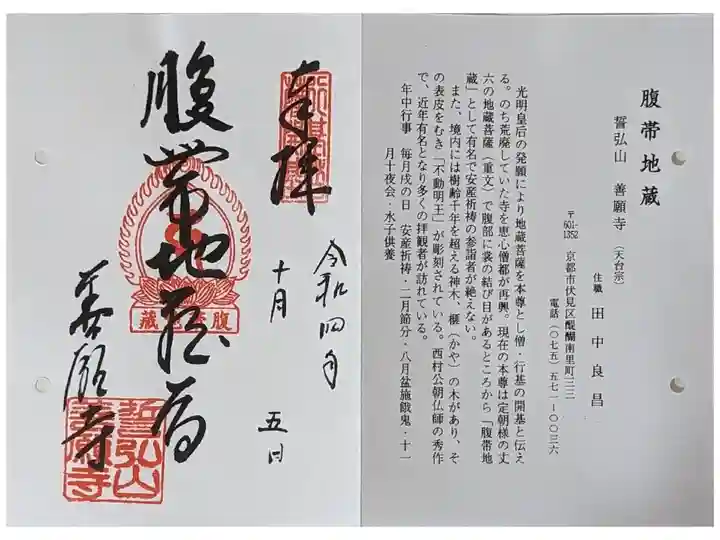 腹帯地蔵
誓弘山 善願寺 (天台宗)
住職 田中良昌
〒601-1352 京都市伏見区醍醐南里町三三
電話(〇七五)五七一-〇〇三六
光明皇后の発願により地蔵菩薩を本尊とし僧・行基の開基と伝え
る。のち荒廃していた寺を恵心僧都が再興。現在の本尊は定朝様の丈
六の地蔵菩薩(重文)で腹部に裳の結び目があるところから「腹帯地
蔵」として有名で安産祈祷の参詣者が絶えない。
また、境内には樹齢千年を超える神木、榧(かや)の木があり、そ
の表皮をむき「不動明王」が彫刻されている。西村公朝仏師の秀作
で、近年有名となり多くの拝観者が訪れている。
年中行事 毎月戌の日 安産祈祷・二月節分・八月盆施餓鬼・十一
月十夜会・水子供養
令和四年
十月 五日
奉拝
腹帯地蔵尊
腹帯地蔵
善願寺
誓弘山
善願寺